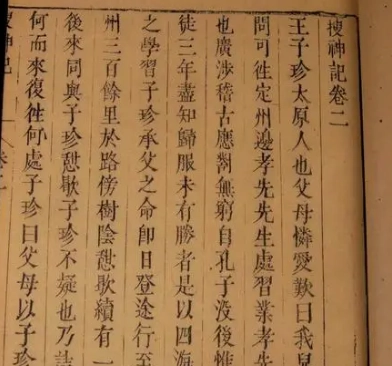 搜神記卷二
王子珍太原人也父母憐愛歎曰我兒
問可徃定州邊孝先先生處習業孝先
也廣涉稽古應對無窮自孔子没後惟
徒三年盡知歸服未有勝者是以四海
之學習子珍承父之命卽日登途行至
州三百餘里於路傍樹陰憇歇續有一
後來同與子珍憇歇子珍不疑也乃
何而來復徃何處子珍曰父母以子珍
搜神記